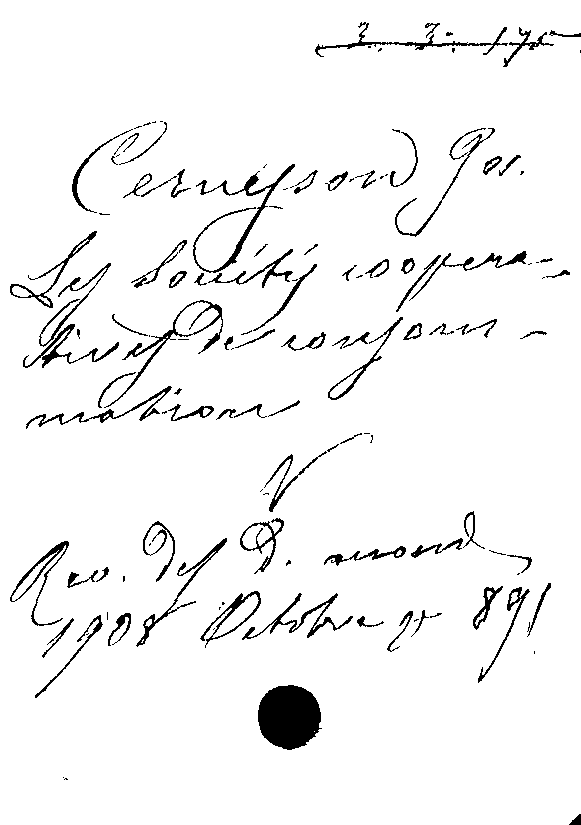 3. 3. 175
Cerneyson Jos.
Les Sociétés coopéra-
tives de consom-
mation
Rev. des D. mond
1908 Octobre p 891